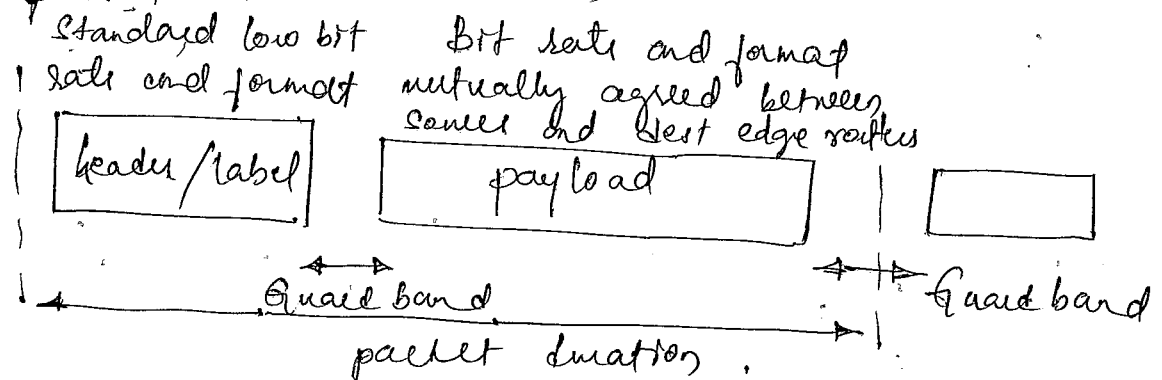 Standard low bit   Bit rate and format
rate and format   mutually agreed between
source and dest edge routers
header/label
payload
Guard band
Guard band
packet duration.